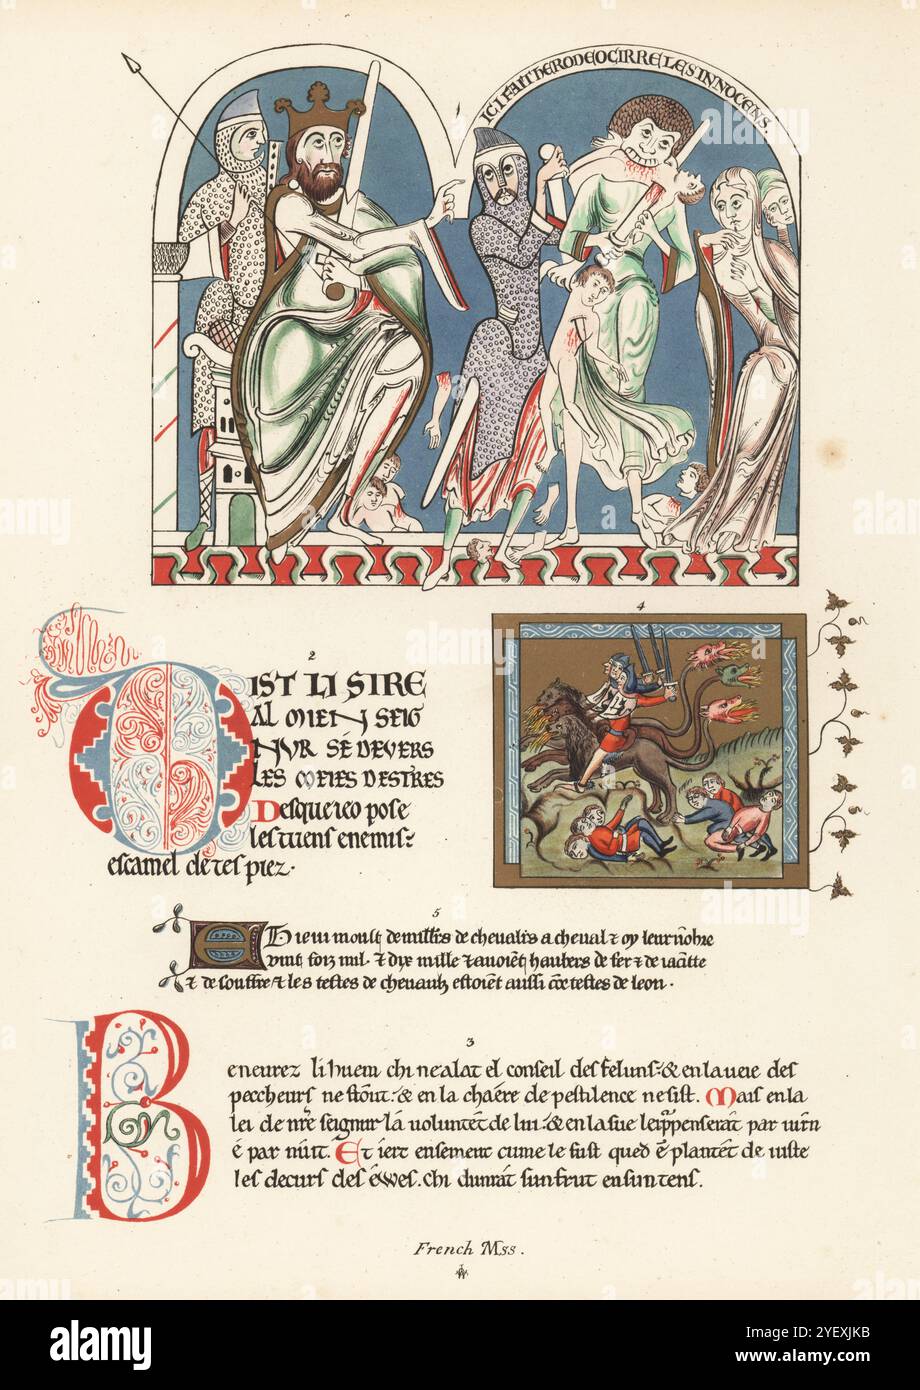 ICI FAIT HERODE OCIRRE LES INNOCENS.
1
2
DIST LI SIRE
AL MIEN SEIG
NUR SÉ DEVERS
LES MEIES DESTRES
Desque jeo pose
les tuens enemis:
escamel de tes piez.
4
5
E Hi eu moult de milliers de chevaliers a cheval & oy leur nõbre
vint foiz mil. & dix mille & avoient haubers de fer & de iacincte
& de souffre & les testes de chevaulx estoient aussi cõe testes de leon.
3
Beneurez li huem chi ne alat el conseil des feluns: & en la veie des
peccheurs ne stout: & en la chaére de pestilence ne sist. Mais en la
lei de nr̃e seignur la voluntét de lui: & en la sue lei p̃penserat par jurn
é par nuit. Et iert ensement cume le fust qued ẽ plantét de juste
les decurs des éwes. chi dunrat sun frut en sun tens.
French Mss.
alamy
Image ID: 2YEXJKB
www.alamy.com